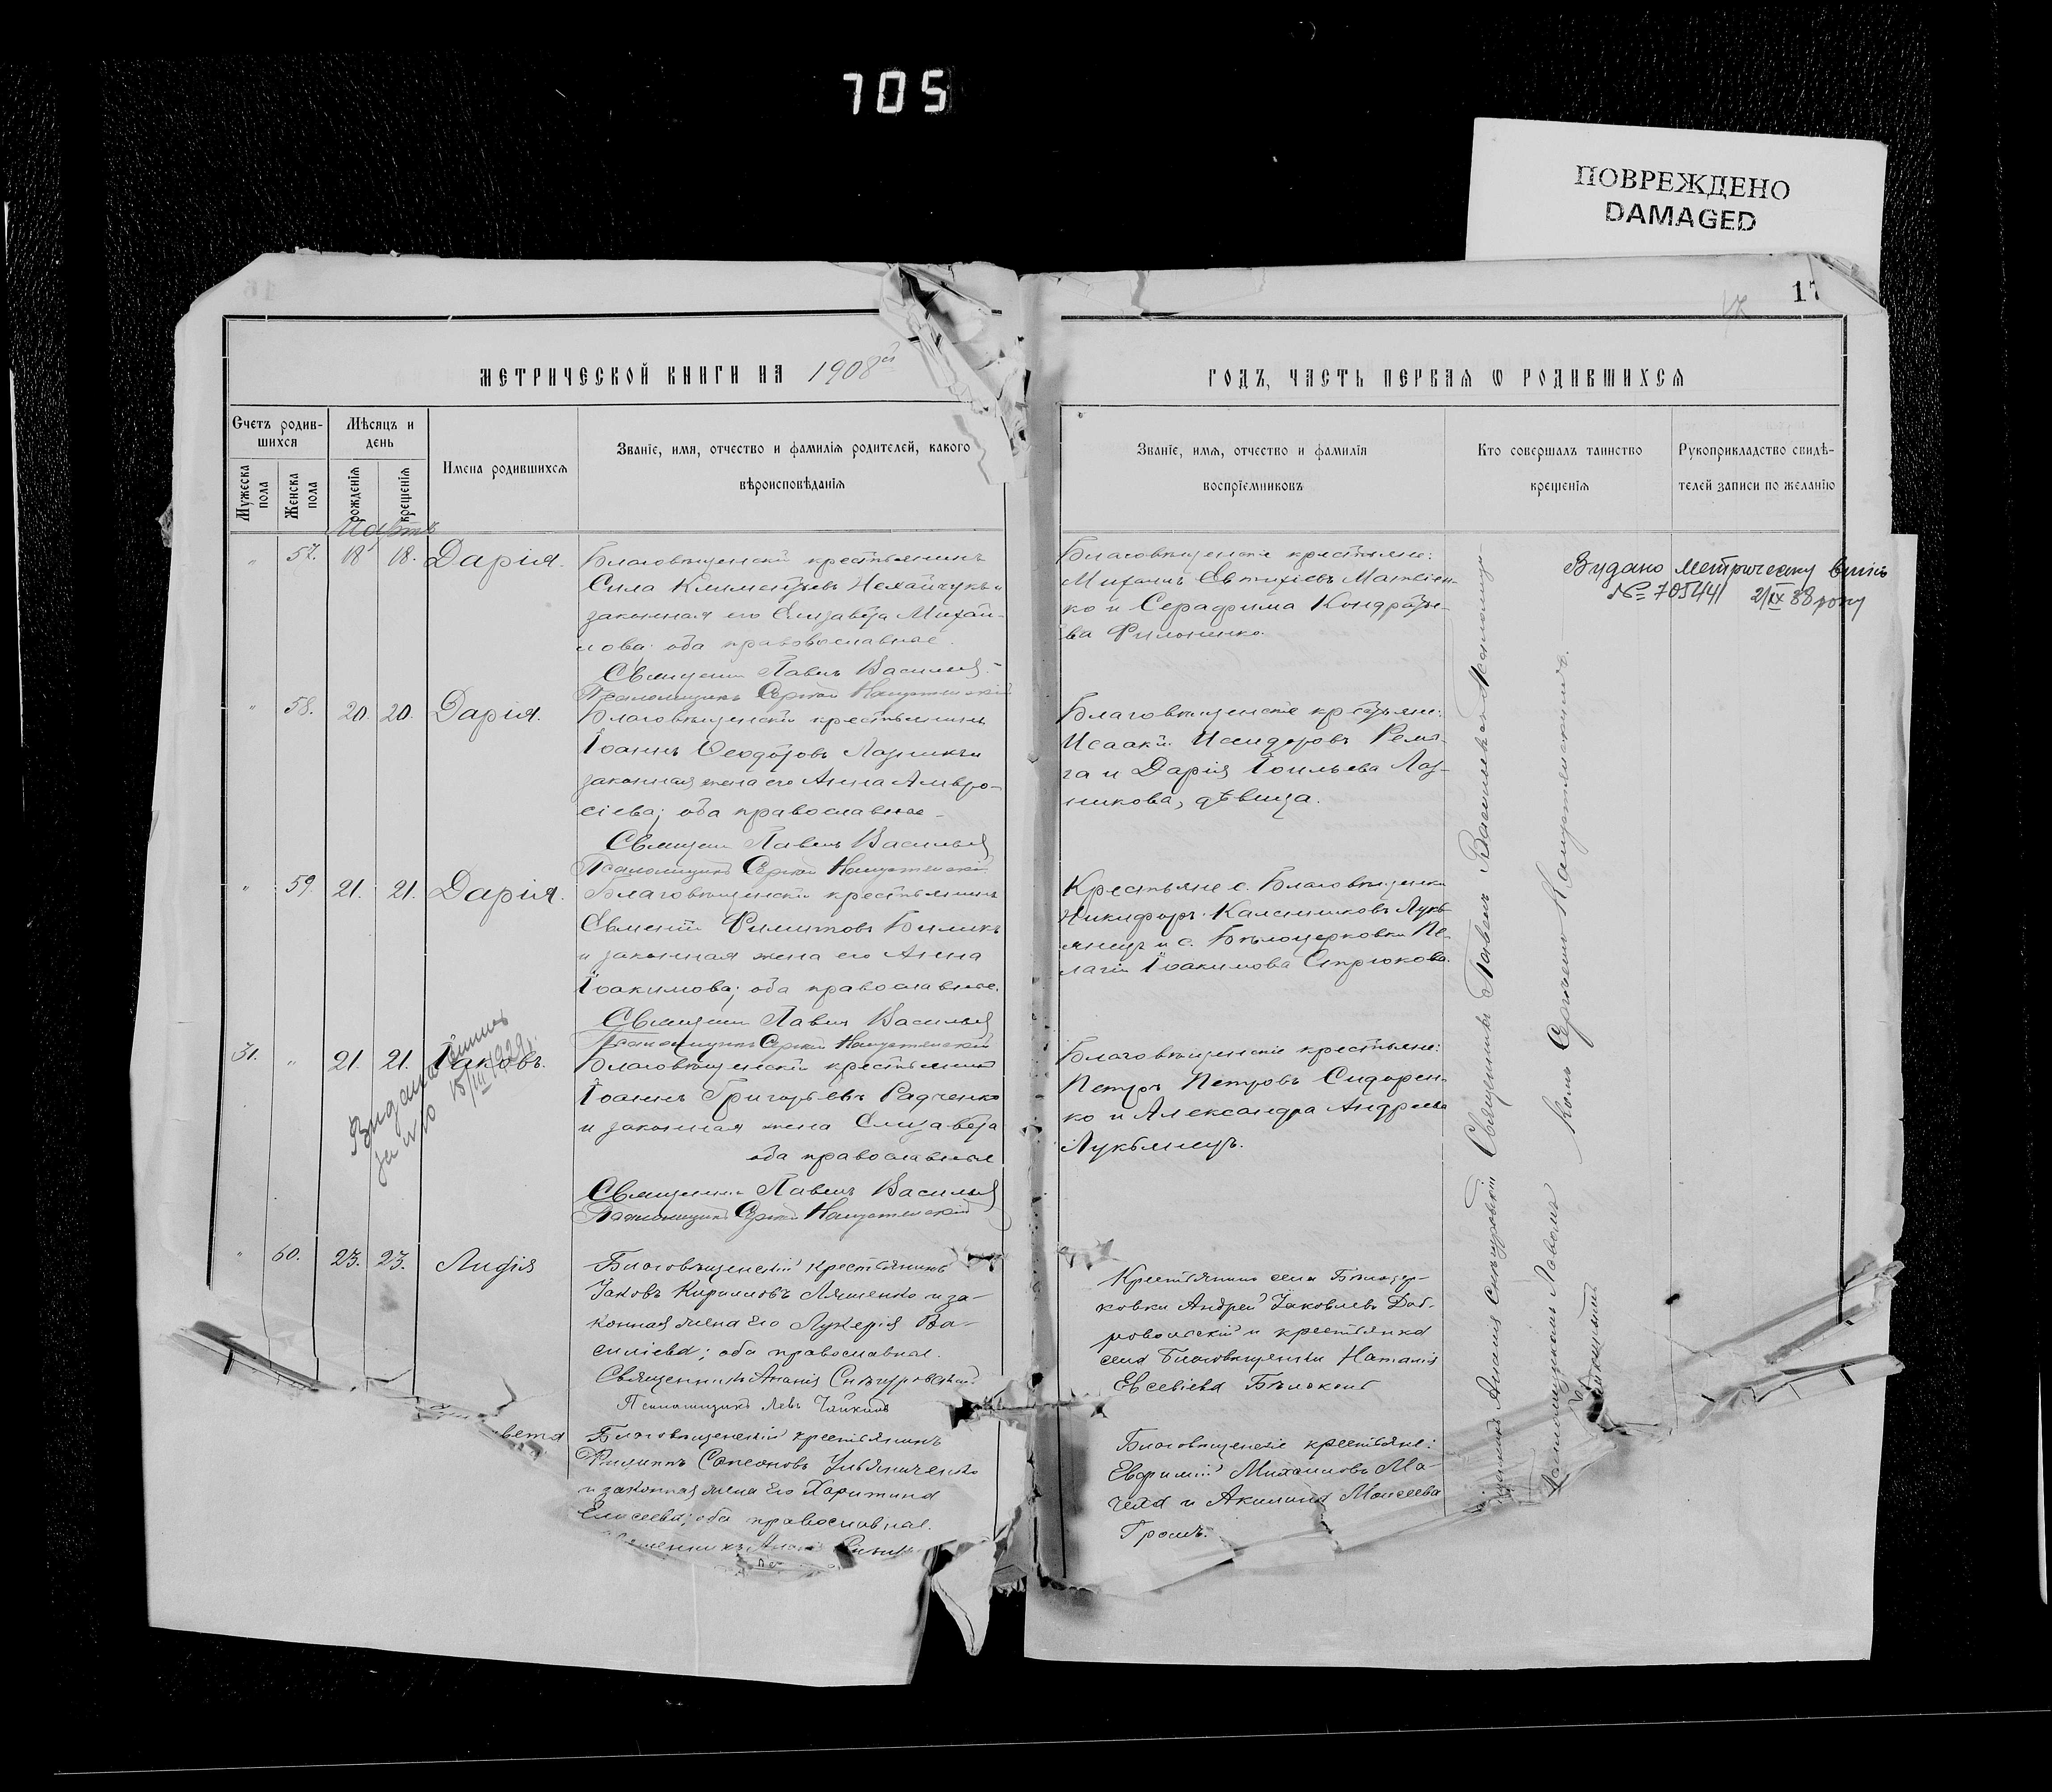 705
ПОВРЕЖДЕНО
DAMAGED
17
МЕТРИЧЕСКОЙ КНИГИ НА 1908й
ГОДЪ, ЧАСТЬ ПЕРВАЯ Ѡ РОДИВШИХСЯ
Счетъ родив-
шихся
Мужеска пола
Женска пола
Мѣсяцъ и
день
рожденія
крещенія
Имена родившихся
Званіе, имя, отчество и фамилія родителей, какого
вѣроисповѣданія
Званіе, имя, отчество и фамилія
воспріемниковъ
Кто совершалъ таинство
крещенія
Рукоприкладство свидѣ-
телей записи по желанію
Мартъ
" 57. 18 18. Дарія.
Благовѣщенскій крестьянинъ
Сила Климентьевъ Нехайчукъ и
законная его Елизавета Михаи-
лова: оба православные.
Священ. Павелъ Васильев
Псаломщикъ Сергій
Благовѣщенскіе крестьяне:
Михаилъ Евтихіевъ Матвіен-
ко и Серафима Кондратье-
ва Филоненко.
Видано метричну
№ 705441 2/IX 38 року
" 58. 20. 20. Дарія.
Благовѣщенскій крестьянинъ
Іоаннъ Ѳеодоровъ
законная жена его Анна Амвро-
сіева; оба православные.
Священ. Павелъ Васильев
Псаломщикъ Сергій
Благовѣщенскіе крестьяне:
Исаакій Исидоровъ
га и Дарія Іоильева Лаз-
никова, дѣвица.
" 59. 21. 21. Дарія.
Благовѣщенскій крестьянинъ
Евменій Филиповъ Биликъ
и законная жена его Анна
Іоакимова; оба православные.
Священ. Павелъ Васильев
Псаломщикъ Сергій
Крестьяне с. Благовѣщенки
Никифоръ Калениковъ Лукь-
янецъ и с. Бѣлоцерковки Пе-
лагія Іоакимова Стрюкова.
31. " 21. 21. Іаковъ.
за № 10 15/III 1929
Благовѣщенскій крестьянинъ
Іоаннъ Григорьевъ Радченко
и законная жена Елизавета
оба православные
Священникъ Павелъ Васильев
Псаломщикъ Сергій
Благовѣщенскіе крестьяне:
Петръ Петровъ Сидорен-
ко и Александра Андреева
Лукьянецъ.
" 60. 23. 23. Лидія
Благовѣщенскій крестьянинъ
Іаковъ Кирилловъ Ляшенко и за-
конная жена его Лукерія Ва-
силіева; оба православные.
Священникъ Ананія Снѣгуровскій
Псаломщикъ Левъ Чайкинъ
Крестьянинъ села Бѣлоцер-
ковки Андрей Іаковлевъ Доб-
ровольскій и крестьянка
села Благовѣщенки Наталія
Евсевіева Бѣлоконь
вета
Благовѣщенскій крестьянинъ
Филиппъ Самсоновъ Ульянченко
и законная жена его Харитина
Елисеева; оба православные.
Благовѣщенскіе крестьяне:
Евфимій Михаиловъ Ма-
чела и Акилина Моисеева
Громъ.
Священникъ Павелъ Васильевъ
Ананія Снѣгуровскій